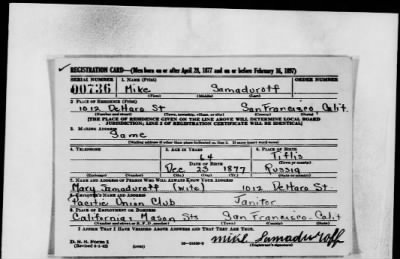 REGISTRATION CARD—(Men born on or after April 28, 1877 and on or before February 16, 1897)
SERIAL NUMBER 1. NAME (Print)
00736 Mike Samaduroff
(First) (Middle) (Last)
2. PLACE OF RESIDENCE (Print)
1012 DeHaro St San Francisco, Calif.
(Number and street) (Town, township, village, or city) (County) (State)
[THE PLACE OF RESIDENCE GIVEN ON THE LINE ABOVE WILL DETERMINE LOCAL BOARD
JURISDICTION; LINE 2 OF REGISTRATION CERTIFICATE WILL BE IDENTICAL]
3. MAILING ADDRESS
Same
[Mailing address if other than place indicated on line 2. If same insert word same]
4. TELEPHONE 5. AGE IN YEARS 6. PLACE OF BIRTH
64 Tiflis
DATE OF BIRTH (Town or county)
Dec 23 1877 Russia
(Exchange) (Number) (Mo.) (Day) (Yr.) (State or country)
7. NAME AND ADDRESS OF PERSON WHO WILL ALWAYS KNOW YOUR ADDRESS
Mary Samaduroff (wife) 1012 DeHaro St.
8. EMPLOYER'S NAME AND ADDRESS
Pacific Union Club Janitor
9. PLACE OF EMPLOYMENT OR BUSINESS
California & Mason Sts San Francisco - Calif
(Number and street or R. F. D. number) (Town) (County) (State)
I AFFIRM THAT I HAVE VERIFIED ABOVE ANSWERS AND THAT THEY ARE TRUE.
D. S. S. Form 1
(Revised 4-1-42) Mike Samaduroff
(Registrant's signature)